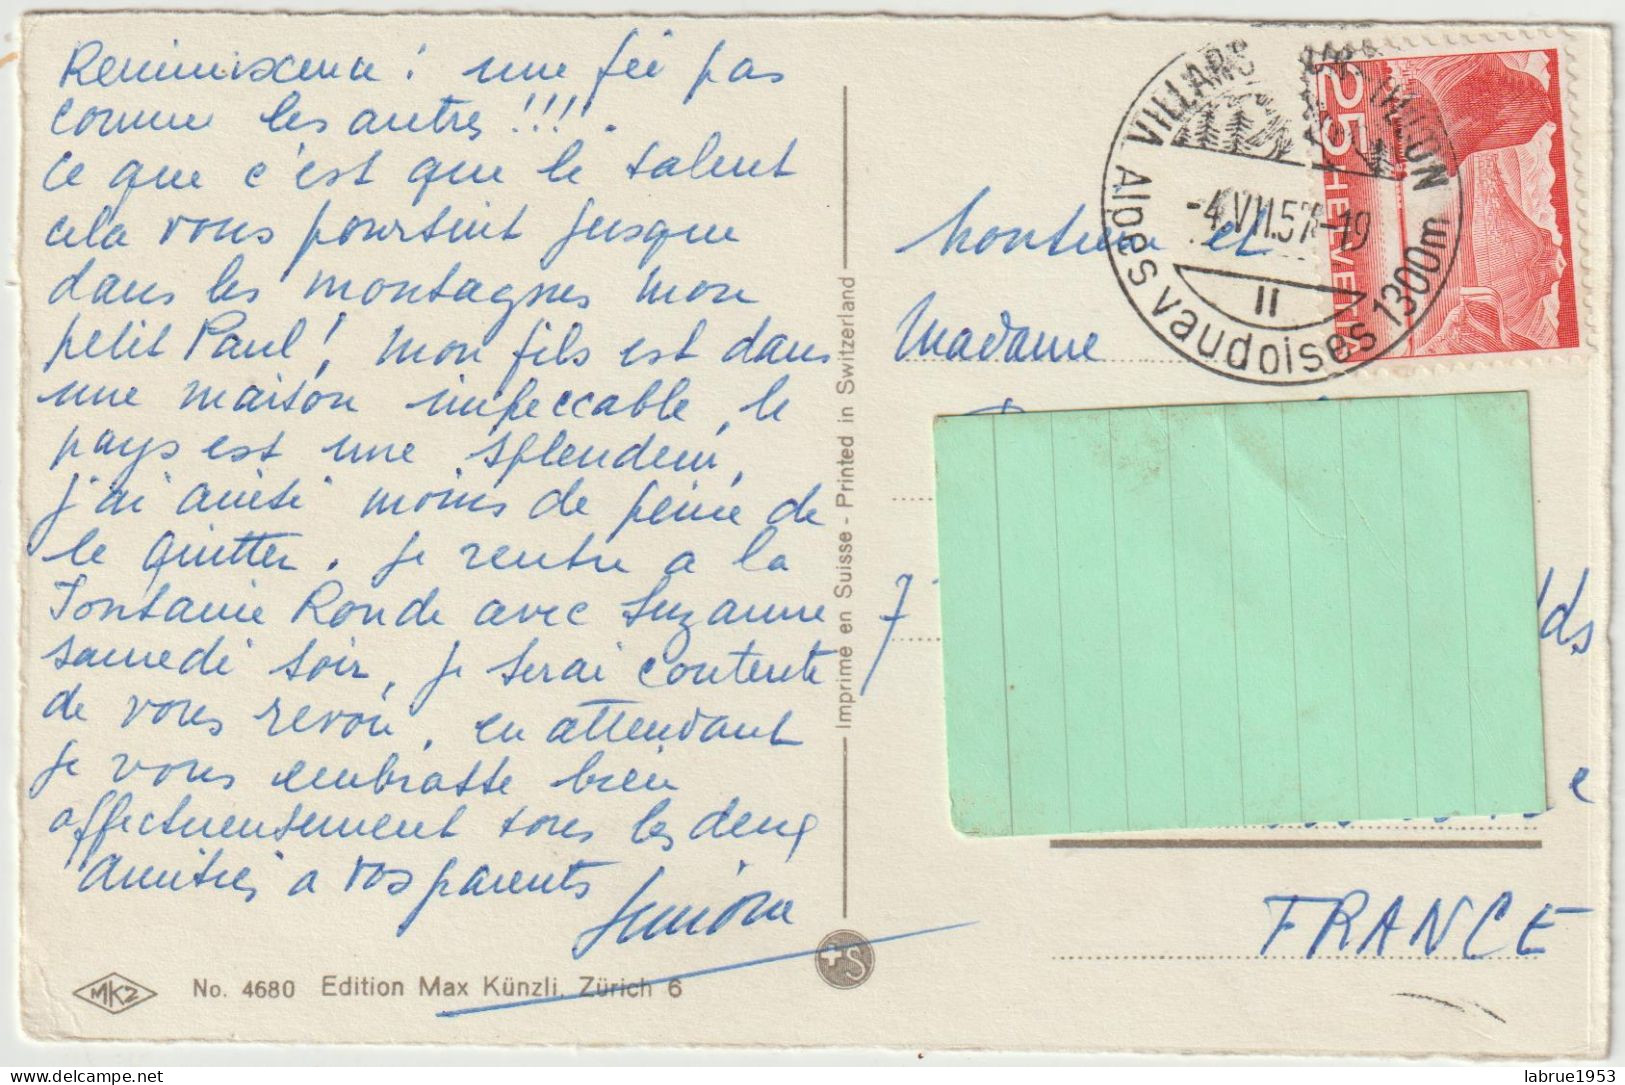 Reminiscence : une fée pas
comme les autres !!!!
ce que c'est que le talent
cela vous poursuit jusque
dans les montagnes mon
petit Paul ! mon fils est dans
une maison impeccable, le
pays est une splendeur,
j'ai ainsi moins de peine de
le quitter. je rentre a la
Fontaine Ronde avec Suzanne
samedi soir, je serai contente
de vous revoir, en attendant
je vous embrasse bien
affectueusement tous les deux
amitiés a vos parents
Simone
MKZ
No. 4680 Edition Max Künzli, Zürich 6
Imprimé en Suisse - Printed in Switzerland
+S
VILLARS
Alpes vaudoises 1300m
-4.VII.57-19
II
25
HELVETIA
Monsieur et
Madame
7
lds
e
FRANCE
delcampe.net
labrue1953